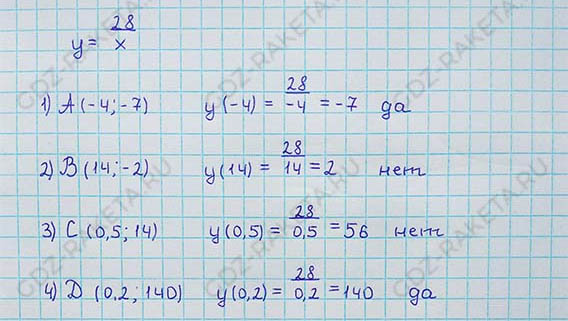 y = 28/x
1) A (-4; -7) y(-4) = 28/-4 = -7 да
2) B (14; -2) y(14) = 28/14 = 2 нет
3) C (0,5; 14) y(0,5) = 28/0,5 = 56 нет
4) D (0,2; 140) y(0,2) = 28/0,2 = 140 да
GDZ-RAKETA.RU